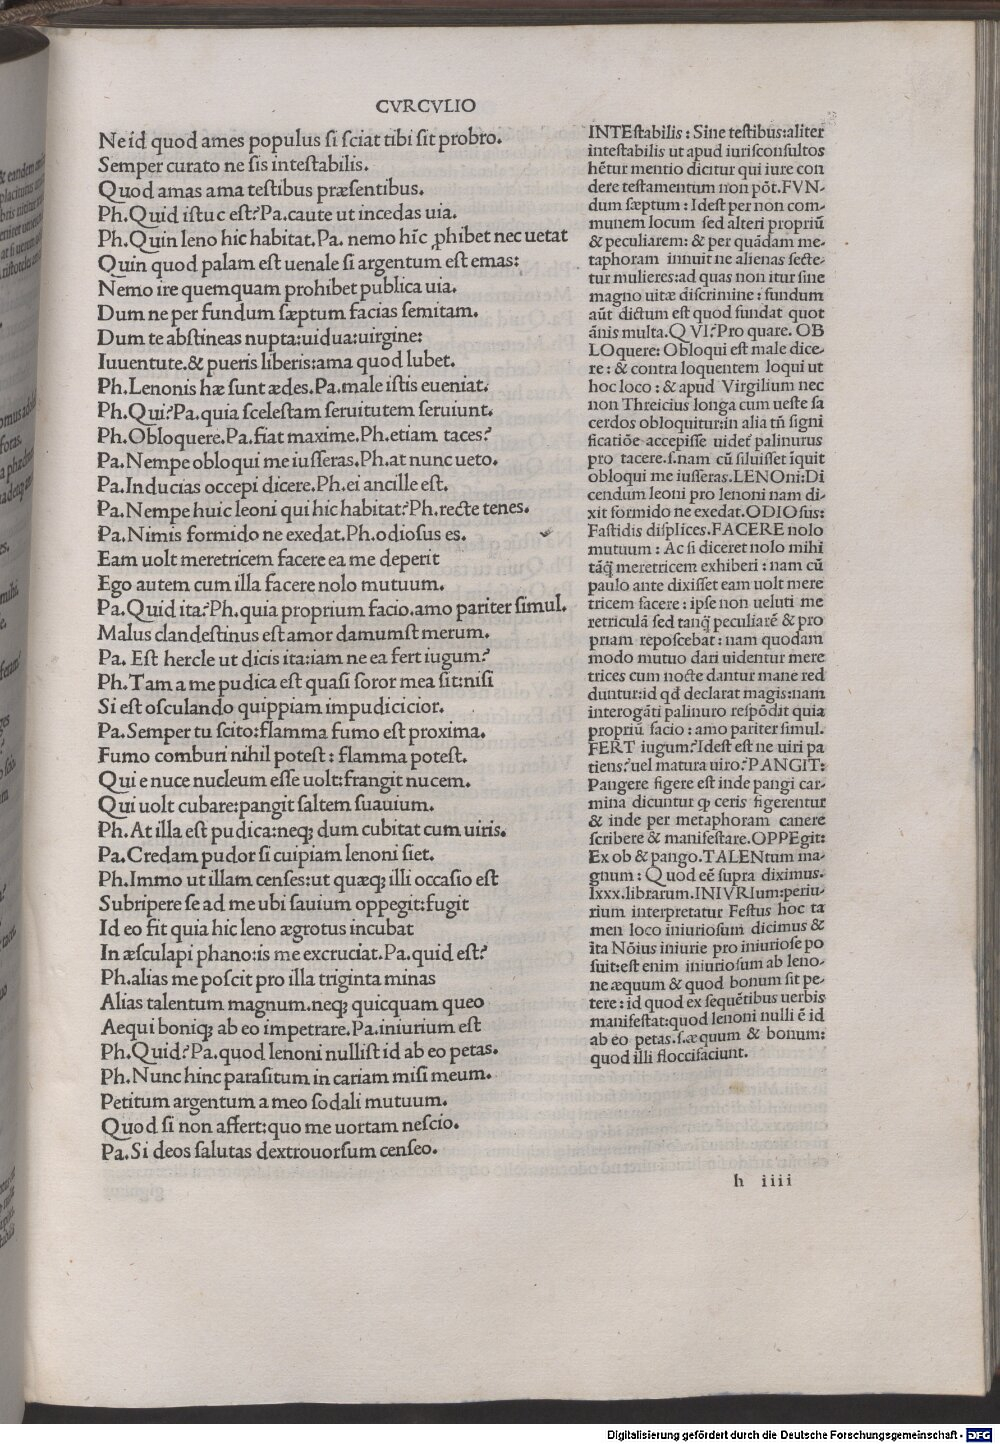 CVRCVLIO
Ne id quod ames populus si sciat tibi sit probro.
Semper curato ne sis intestabilis.
Quod amas ama testibus præsentibus.
Ph.Quid istuc est?Pa.caute ut incedas uia.
Ph.Quin leno hic habitat.Pa. nemo hīc ꝓhibet nec uetat
Quin quod palam est uenale si argentum est emas:
Nemo ire quemquam prohibet publica uia.
Dum ne per fundum sæptum facias semitam.
Dum te abstineas nupta:uidua:uirgine:
Iuuentute.& pueris liberis:ama quod lubet.
Ph.Lenonis hæ sunt ædes.Pa.male istis eueniat.
Ph.Qui?Pa.quia scelestam seruitutem seruiunt.
Ph.Obloquere.Pa.fiat maxime.Ph.etiam taces?
Pa.Nempe obloqui me iusseras.Ph.at nunc ueto.
Pa.Inducias occepi dicere.Ph.ei ancille est.
Pa.Nempe huic leoni qui hic habitat?Ph.recte tenes.
Pa.Nimis formido ne exedat.Ph.odiosus es.
Eam uolt meretricem facere ea me deperit
Ego autem cum illa facere nolo mutuum.
Pa.Quid ita?Ph.quia proprium facio.amo pariter simul.
Malus clandestinus est amor damumst merum.
Pa. Est hercle ut dicis ita:iam ne ea fert iugum?
Ph.Tam a me pudica est quasi soror mea sit:nisi
Si est osculando quippiam impudicicior.
Pa.Semper tu scito:flamma fumo est proxima.
Fumo comburi nihil potest: flamma potest.
Qui e nuce nucleum esse uolt:frangit nucem.
Qui uolt cubare:pangit saltem suauium.
Ph.At illa est pudica:neq; dum cubitat cum uiris.
Pa.Credam pudor si cuipiam lenoni siet.
Ph.Immo ut illam censes:ut quæq; illi occasio est
Subripere se ad me ubi sauium oppegit:fugit
Id eo fit quia hic leno ægrotus incubat
In æsculapi phano:is me excruciat.Pa.quid est?
Ph.alias me poscit pro illa triginta minas
Alias talentum magnum.neq; quicquam queo
Aequi boniq; ab eo impetrare.Pa.iniurium est
Ph.Quid?Pa.quod lenoni nullist id ab eo petas.
Ph.Nunc hinc parasitum in cariam misi meum.
Petitum argentum a meo sodali mutuum.
Quod si non affert:quo me uortam nescio.
Pa.Si deos salutas dextrouorsum censeo.
INTEstabilis: Sine testibus:aliter
intestabilis ut apud iurisconsultos
hētur mentio dicitur qui iure con
dere testamentum non pōt.FVN-
dum sæptum: Idest per non com-
munem locum sed alteri propriū
& peculiarem: & per quādam me-
taphoram innuit ne alienas secte-
tur mulieres:ad quas non itur sine
magno uitæ discrimine: fundum
aūt dictum est quod fundat quot
ānis multa.QVI?Pro quare. OB
LOquere: Obloqui est male dice-
re: & contra loquentem loqui ut
hoc loco: & apud Virgilium nec
non Threicius longa cum ueste sa
cerdos obloquitur:in alia tñ signi
ficatiōe accepisse uidet̄ palinurus
pro tacere.s.nam cū siluisset īquit
obloqui me iusseras.LENOni:Di
cendum leoni pro lenoni nam di-
xit formido ne exedat.ODIOsus:
Fastidis displices.FACERE nolo
mutuum: Ac si diceret nolo mihi
tāq̄ meretricem exhiberi: nam cū
paulo ante dixisset eam uolt mere
tricem facere: ipse non ueluti me
retriculā sed tanq̄ peculiarē & pro
priam reposcebat: nam quodam
modo mutuo dari uidentur mere
trices cum nocte dantur mane red
duntur:id qd̄ declarat magis:nam
interogāti palinuro respōdit quia
propriū facio: amo pariter simul.
FERT iugum?Idest est ne uiri pa
tiens?uel matura uiro?PANGIT:
Pangere figere est inde pangi car-
mina dicuntur ꝙ ceris figerentur
& inde per metaphoram canere
scribere & manifestare.OPPEgit:
Ex ob & pango.TALENtum ma-
gnum: Quod eē supra diximus.
lxxx.librarum.INIVRIum:periu-
rium interpretatur Festus hoc ta
men loco iniuriosum dicimus &
ita Nōius iniurie pro iniuriose po
suit:est enim iniuriosum ab leno-
ne æquum & quod bonum sit pe-
tere: id quod ex sequētibus uerbis
manifestat:quod lenoni nulli ē id
ab eo petas.s.æquum & bonum:
quod illi floccifaciunt.
h iiii
Digitalisierung gefördert durch die Deutsche Forschungsgemeinschaft - DFG